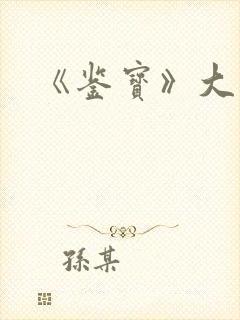 《鉴宝》大
孫某